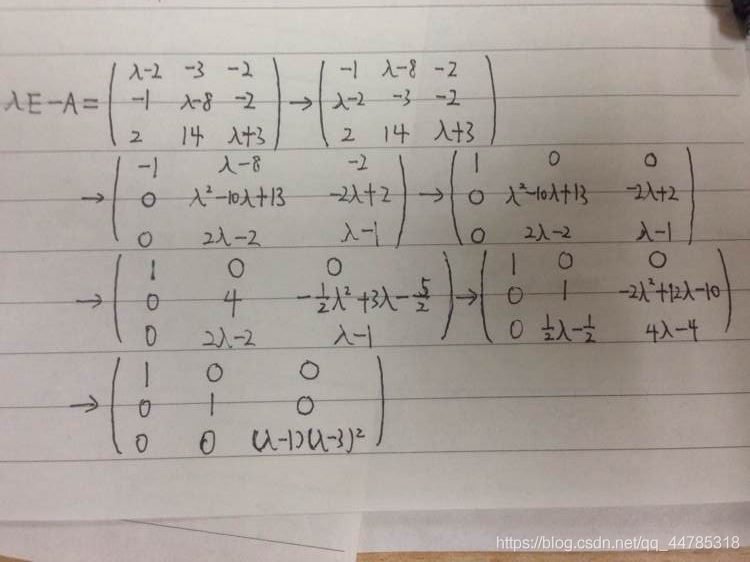 λE-A = ( λ-2 -3 -2 ; -1 λ-8 -2 ; 2 14 λ+3 ) → ( -1 λ-8 -2 ; λ-2 -3 -2 ; 2 14 λ+3 )
→ ( -1 λ-8 -2 ; 0 λ²-10λ+13 -2λ+2 ; 0 2λ-2 λ-1 ) → ( 1 0 0 ; 0 λ²-10λ+13 -2λ+2 ; 0 2λ-2 λ-1 )
→ ( 1 0 0 ; 0 4 -½λ²+3λ-5/2 ; 0 2λ-2 λ-1 ) → ( 1 0 0 ; 0 1 -2λ²+12λ-10 ; 0 ½λ-½ 4λ-4 )
→ ( 1 0 0 ; 0 1 0 ; 0 0 (λ-1)(λ-3)² )
https://blog.csdn.net/qq_44785318